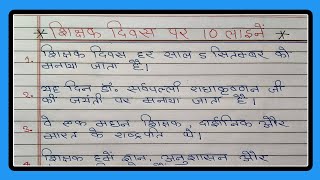 शिक्षक दिवस पर 10 लाइनें
1. शिक्षक दिवस हर साल 5 सितम्बर को
मनाया जाता है।
2. यह दिन डॉ. सर्वपल्ली राधाकृष्णन जी
की जयंती पर मनाया जाता है।
3. वे एक महान शिक्षक, दार्शनिक और
भारत के राष्ट्रपति थे।
4. शिक्षक हमें ज्ञान, अनुशासन और